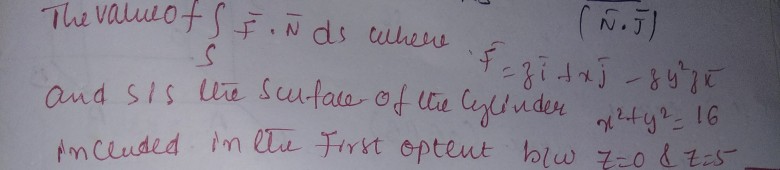 The value of ∫ F̄ . N̄ ds where (N̄ . J̄)
S
F̄ = zī + xj̄ - 3y²zk̄
and S is the surface of the cylinder x²+y² = 16
included in the First optent b/w z=0 & z=5